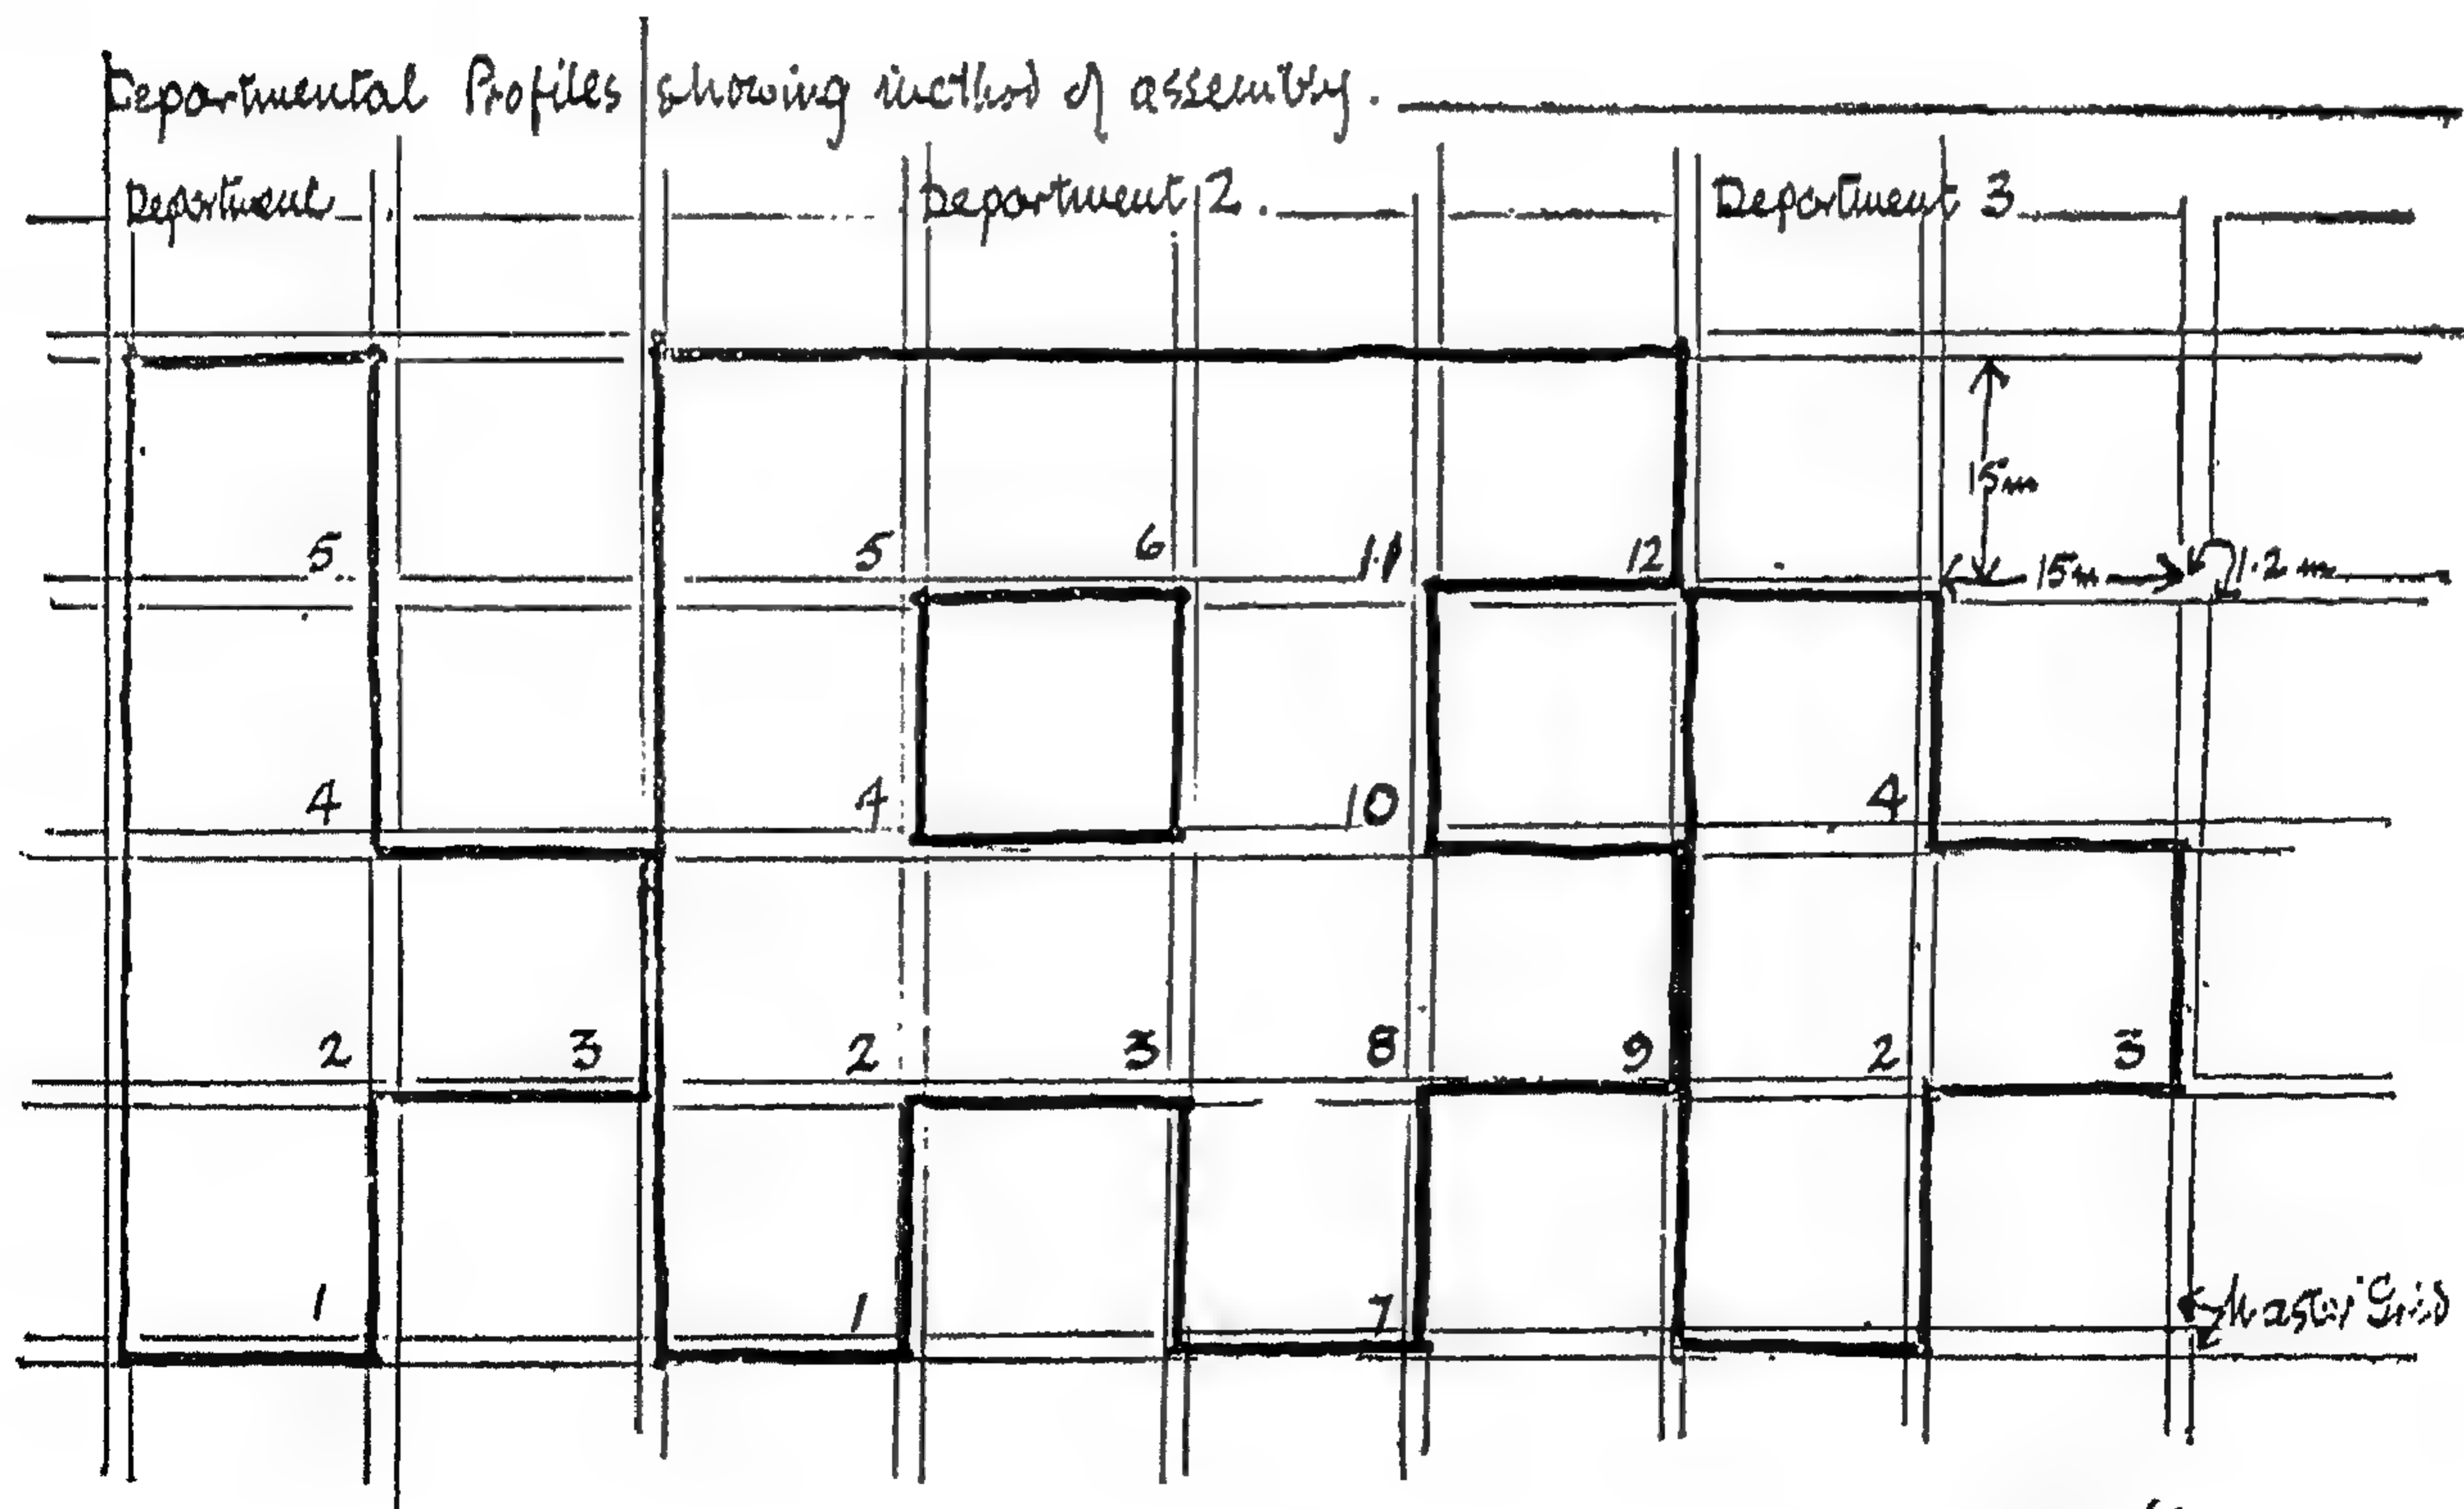 Departmental Profiles showing method of assembly.
Department
Department 2.
Department 3
15m
5
5
6
11
12
15m
1.2 m
4
4
10
4
2
3
2
3
8
9
2
3
1
1
7
Master Grid